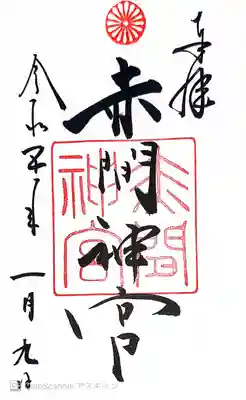 奉拝
赤間神宮
赤間神宮
令和四年
一月九日
CamScanner でスキャン